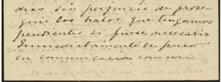 dias sin perjuicio de prose-
guir los tratos que tengamos
pendientes si fuese necesario
Inmediatamente se puso
en comunicacion con